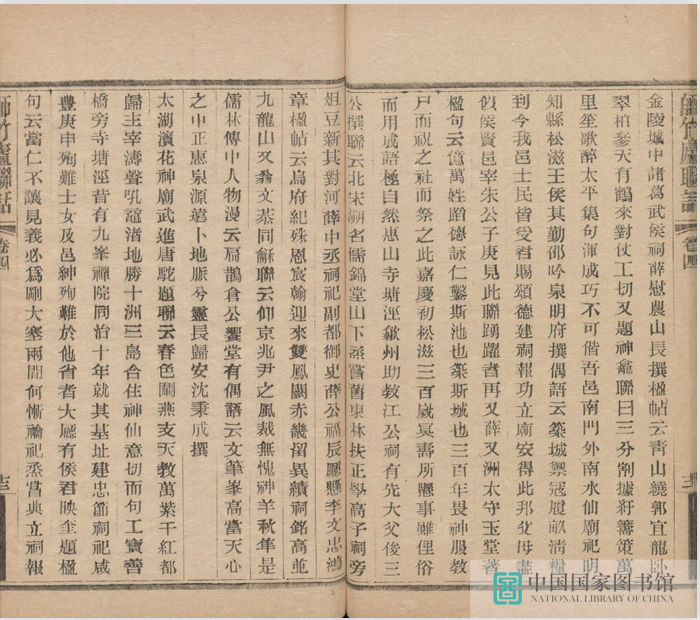 金陵城中諸葛武侯祠薛慰農山長撰楹帖云靑山繞郭宜龍臥
翠柏參天有鶴來對仗工切又題神龕聯曰三分割據紆籌策萬
里笙歌醉太平集句渾成巧不可偕吾邑南門外南水仙廟祀明
知縣松滋王侯其勤邵吟泉明府撰偶語云築城禦寇履畝淸糧
到今我邑士民皆受君賜頌德建祠報功立廟安得此邦父母盡
似侯賢邑宰朱公子庚見此聯踴躍者再又薛又洲太守玉堂著
楹句云億萬姓蹈德詠仁鑿斯池也築斯城也三百年畏神服教
尸而祝之社而祭之此嘉慶初松滋三百歲冥壽所懸事雖俚俗
而用成語極自然惠山寺塘涇歙州助教江公祠有先大父俊三
公撰聯云北宋溯名儒錦堂山下烝嘗舊東林扶正學高子祠旁
俎豆新其對河薛中丞祠祀副都御史薛公福辰懸李文忠鴻
章楹帖云烏府紀殊恩宸翰迎來雙鳳闕赤畿留異績祠銘高並
九龍山又翁文恭同龢聯云仰京兆尹之風裁無愧神羊秋隼是
儒林傳中人物漫云扁鵲倉公饗堂有偶語云文筆峯高當天心
之中正惠泉源遠卜地脈兮靈長歸安沈秉成撰
太湖濱花神廟武進唐駝題聯云春色關燕支天教萬紫千紅都
歸主宰濤聲吼黿渚地勝十洲三島合住神仙意切而句工寶善
橋旁寺塘涇昔有九峯禪院同治十年就其基址建忠節祠祀咸
豐庚申殉難士女及邑紳殉難於他省者大廳有侯君映奎題楹
句云當仁不讓見義必爲剛大塞兩間何慚禴祀烝嘗典立祠報
師竹廬聯話
卷四
十三
中国国家图书馆
NATIONAL LIBRARY OF CHINA